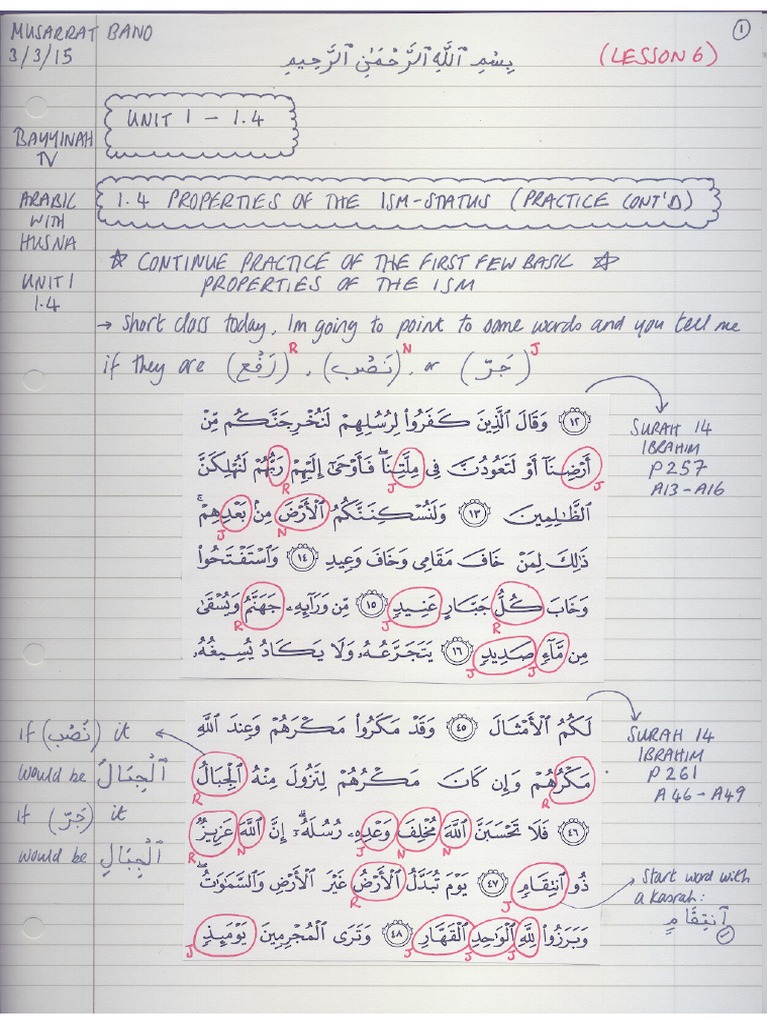 MUSARRAT BANO
3/3/15
بِسْمِ ٱللَّهِ ٱلرَّحْمَٰنِ ٱلرَّحِيمِ
(LESSON 6)
1
BAYYINAH
TV
UNIT 1 - 1.4
ARABIC
WITH
HUSNA
UNIT 1
1.4
1.4 PROPERTIES OF THE ISM-STATUS (PRACTICE CONT'D)
☆ CONTINUE PRACTICE OF THE FIRST FEW BASIC ☆
PROPERTIES OF THE ISM
→ Short class today, Im going to point to some words and you tell me
if they are (رَفْع) R , (نَصْب) N , or (جَرّ) J
١٢ وَقَالَ ٱلَّذِينَ كَفَرُوا۟ لِرُسُلِهِمْ لَنُخْرِجَنَّكُم مِّنْ
أَرْضِنَآ أَوْ لَتَعُودُنَّ فِى مِلَّتِنَا ۖ فَأَوْحَىٰٓ إِلَيْهِمْ رَبُّهُمْ لَنُهْلِكَنَّ
J J R
ٱلظَّٰلِمِينَ ١٣ وَلَنُسْكِنَنَّكُمُ ٱلْأَرْضَ مِنۢ بَعْدِهِمْ ۚ
N J
ذَٰلِكَ لِمَنْ خَافَ مَقَامِى وَخَافَ وَعِيدِ ١٤ وَٱسْتَفْتَحُوا۟
وَخَابَ كُلُّ جَبَّارٍ عَنِيدٍ ١٥ مِّن وَرَآئِهِۦ جَهَنَّمُ وَيُسْقَىٰ
R J R
مِن مَّآءٍ صَدِيدٍ ١٦ يَتَجَرَّعُهُۥ وَلَا يَكَادُ يُسِيغُهُۥ
J J
SURAH 14
IBRAHIM
P257
A13-A16
لَكُمُ ٱلْأَمْثَالَ ٤٥ وَقَدْ مَكَرُوا۟ مَكْرَهُمْ وَعِندَ ٱللَّهِ
مَكْرُهُمْ وَإِن كَانَ مَكْرُهُمْ لِتَزُولَ مِنْهُ ٱلْجِبَالُ
R R
٤٦ فَلَا تَحْسَبَنَّ ٱللَّهَ مُخْلِفَ وَعْدِهِۦ رُسُلَهُۥٓ ۗ إِنَّ ٱللَّهَ عَزِيزٌ
N N J N R
ذُو ٱنتِقَامٍ ٤٧ يَوْمَ تُبَدَّلُ ٱلْأَرْضُ غَيْرَ ٱلْأَرْضِ وَٱلسَّمَٰوَٰتُ ۖ
J R
وَبَرَزُوا۟ لِلَّهِ ٱلْوَٰحِدِ ٱلْقَهَّارِ ٤٨ وَتَرَى ٱلْمُجْرِمِينَ يَوْمَئِذٍ
J J J J
SURAH 14
IBRAHIM
P261
A46-A49
if (نَصْب) it
would be ٱلْجِبَالَ
if (جَرّ) it
would be ٱلْجِبَالِ
Start word with
a kasrah:
ٱنتِقَامٍ